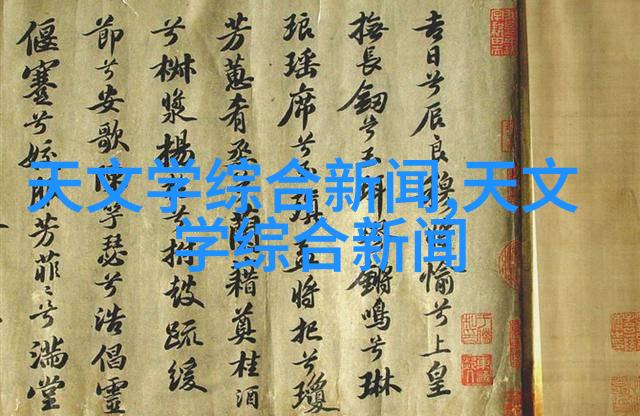 天文学综合新闻,天文
学综合新闻
吉日兮辰良穆愉兮上皇
撫長兮玉鏘鳴兮琳
琅瑤席兮瑱將把兮瓊
芳蕙肴蘭藉奠桂酒
兮椒漿揚拊鼓疏緩
節兮安歌竽瑟兮浩倡靈
偃蹇兮姣芳菲〻兮滿堂